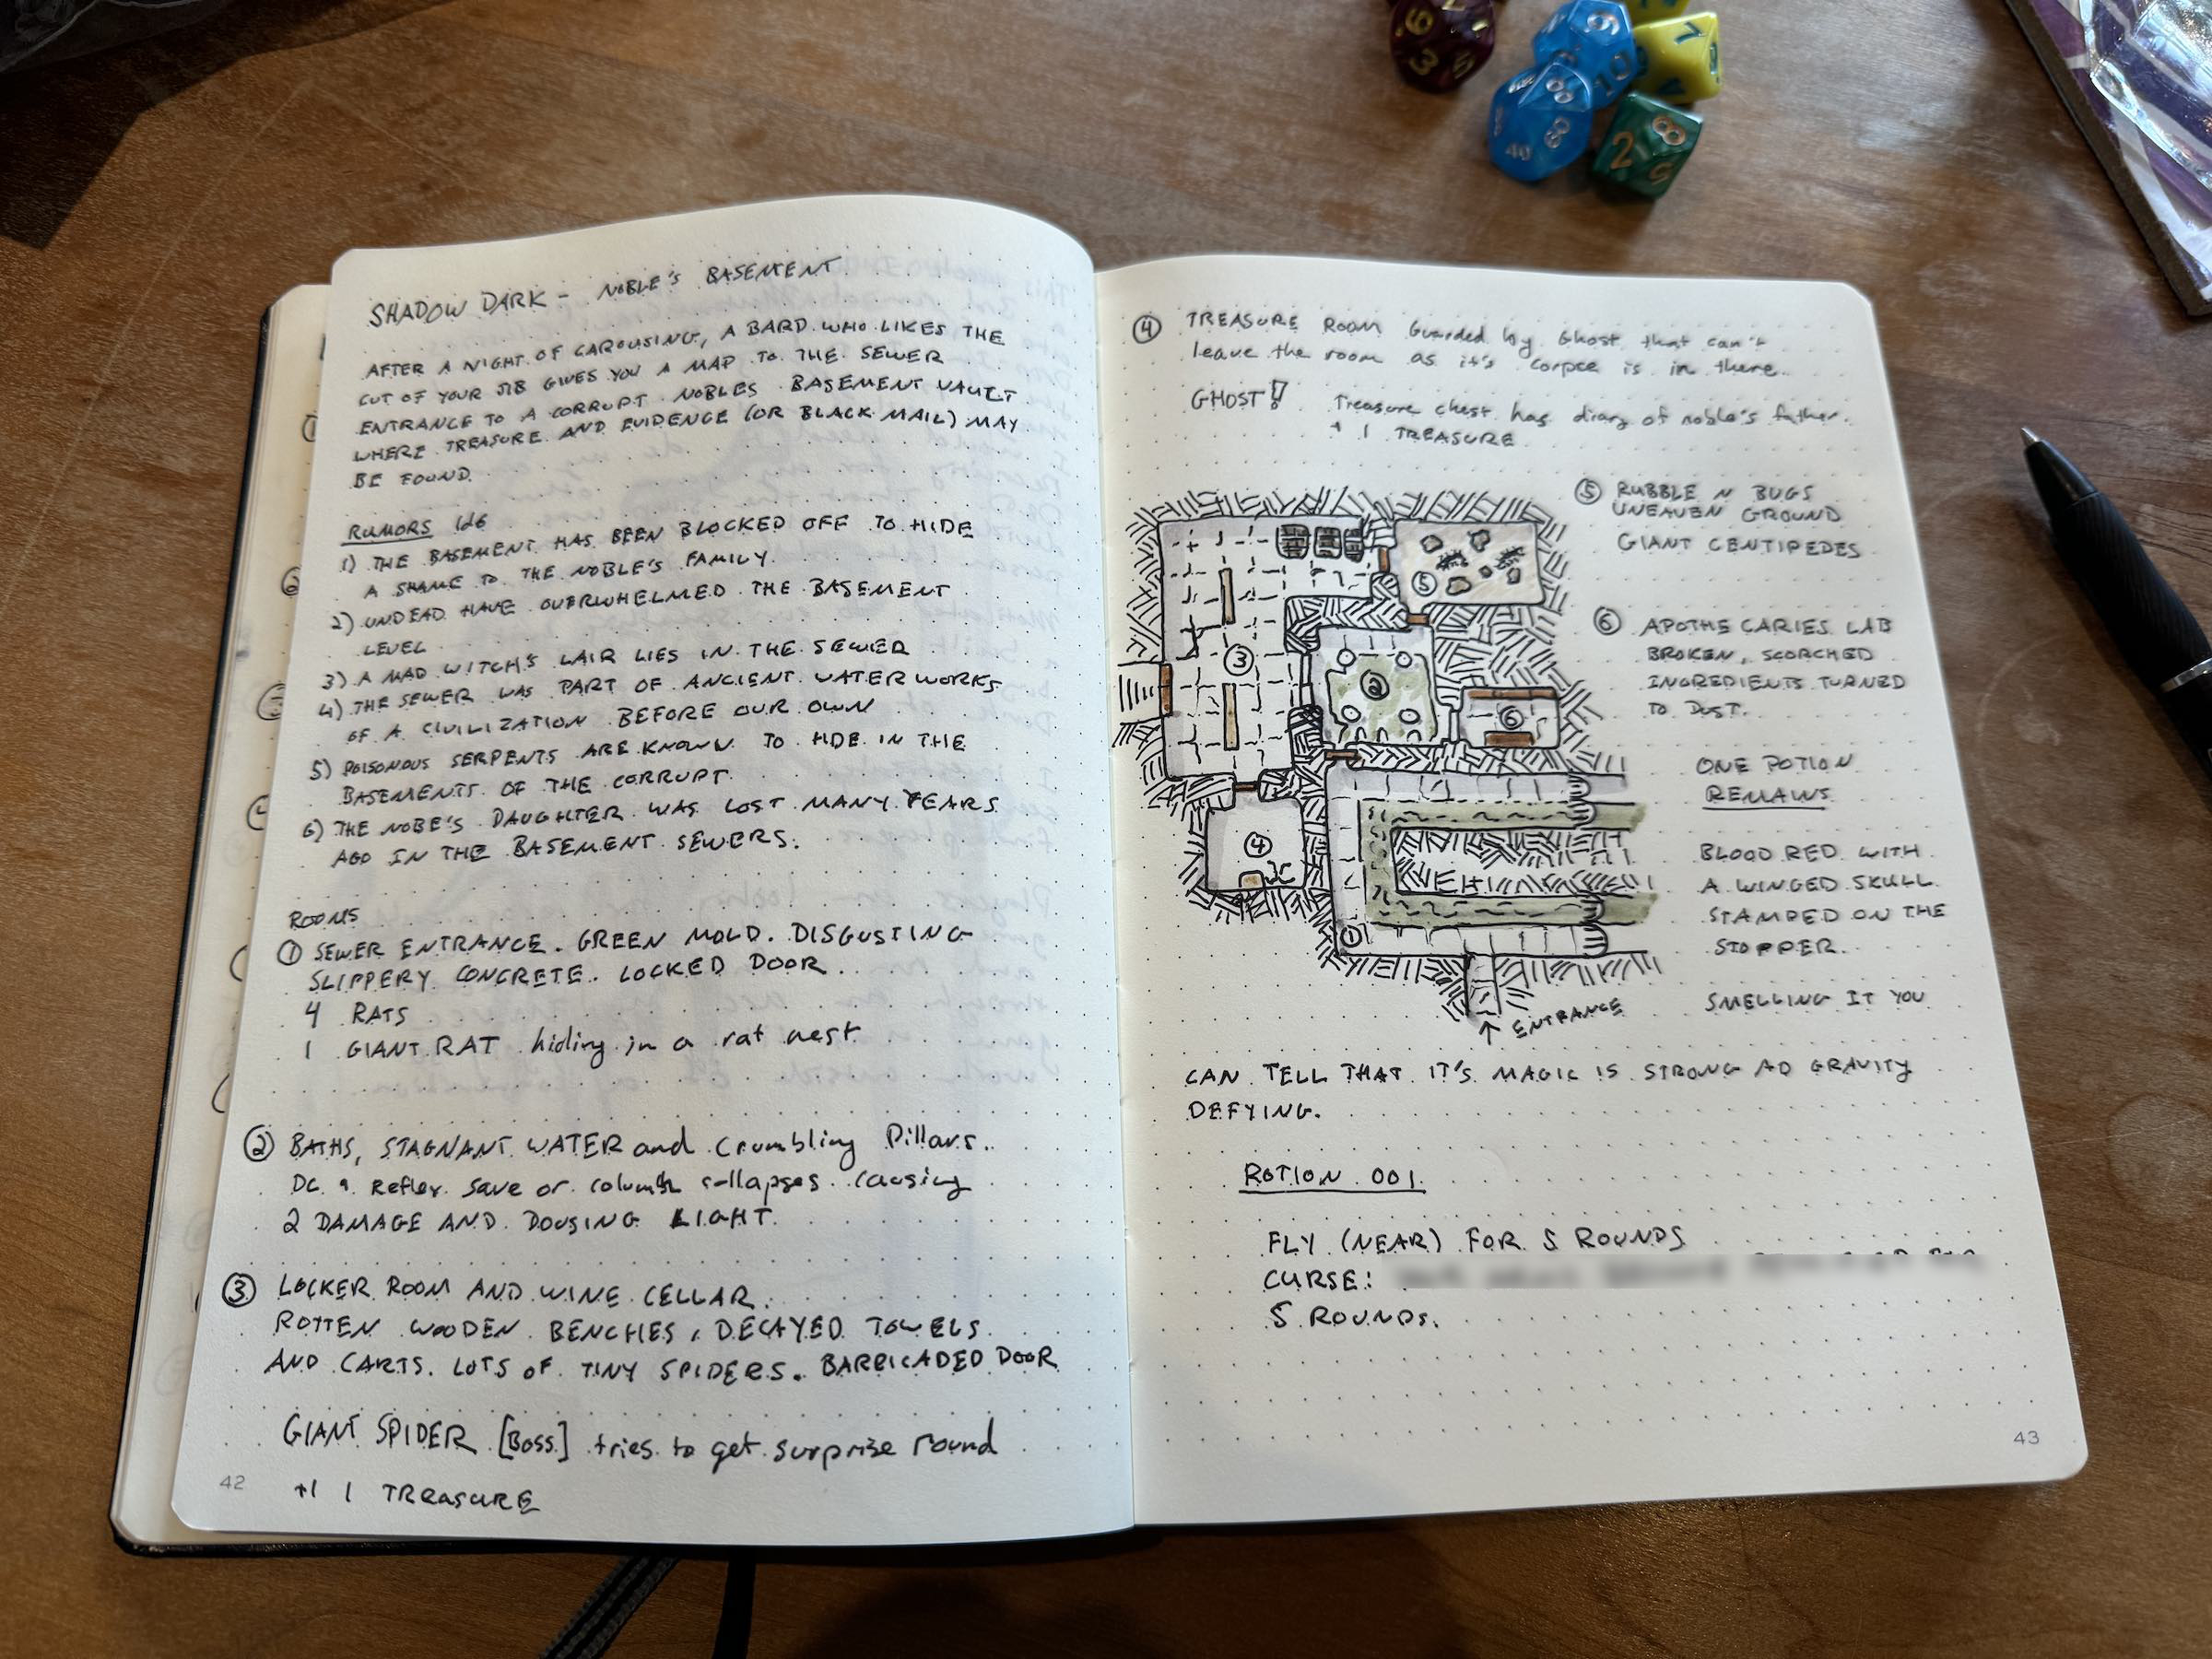 SHADOW DARK - NOBLE'S BASEMENT
AFTER A NIGHT OF CAROUSING, A BARD WHO LIKES THE
CUT OF YOUR JIB GIVES YOU A MAP TO THE SEWER
ENTRANCE TO A CORRUPT NOBLES BASEMENT VAULT
WHERE TREASURE AND EVIDENCE (OR BLACK MAIL) MAY
BE FOUND.
RUMORS 1d6
1) THE BASEMENT HAS BEEN BLOCKED OFF TO HIDE
A SHAME TO THE NOBLE'S FAMILY.
2) UNDEAD HAVE OVERWHELMED THE BASEMENT
LEVEL
3) A MAD WITCH'S LAIR LIES IN THE SEWER
4) THE SEWER WAS PART OF ANCIENT WATERWORKS
OF A CIVILIZATION BEFORE OUR OWN
5) POISONOUS SERPENTS ARE KNOWN TO HIDE IN THE
BASEMENTS OF THE CORRUPT.
6) THE NOBE'S DAUGHTER WAS LOST MANY YEARS
AGO IN THE BASEMENT SEWERS.
ROOMS
① SEWER ENTRANCE. GREEN MOLD. DISGUSTING
SLIPPERY CONCRETE. LOCKED DOOR.
4 RATS
1 GIANT RAT hiding in a rat nest.
② BATHS, STAGNANT WATER and Crumbling Pillars.
DC 9 Reflex save or column collapses causing
2 DAMAGE AND DOUSING LIGHT.
③ LOCKER ROOM AND WINE CELLAR.
ROTTEN WOODEN BENCHES, DECAYED TOWELS
AND CARTS. LOTS OF TINY SPIDERS. BARRICADED DOOR
GIANT SPIDER [Boss] tries to get surprise round
+1 1 TREASURE
42
④ TREASURE ROOM Guarded by Ghost that can't
leave the room as it's corpse is in there.
GHOST! Treasure chest has diary of noble's father.
+ 1 TREASURE
⑤ RUBBLE N BUGS
UNEAVEN GROUND
GIANT CENTIPEDES
⑥ APOTHECARIES LAB
BROKEN, SCORCHED
INGREDIENTS TURNED
TO DUST.
ONE POTION
REMAINS
BLOOD RED WITH
A WINGED SKULL
STAMPED ON THE
STOPPER.
SMELLING IT YOU
CAN TELL THAT IT'S MAGIC IS STRONG AD GRAVITY
DEFYING.
⑤
③
②
⑥
④
①
↑ ENTRANCE
POTION 001
FLY (NEAR) FOR 5 ROUNDS
CURSE:
5 ROUNDS.
43